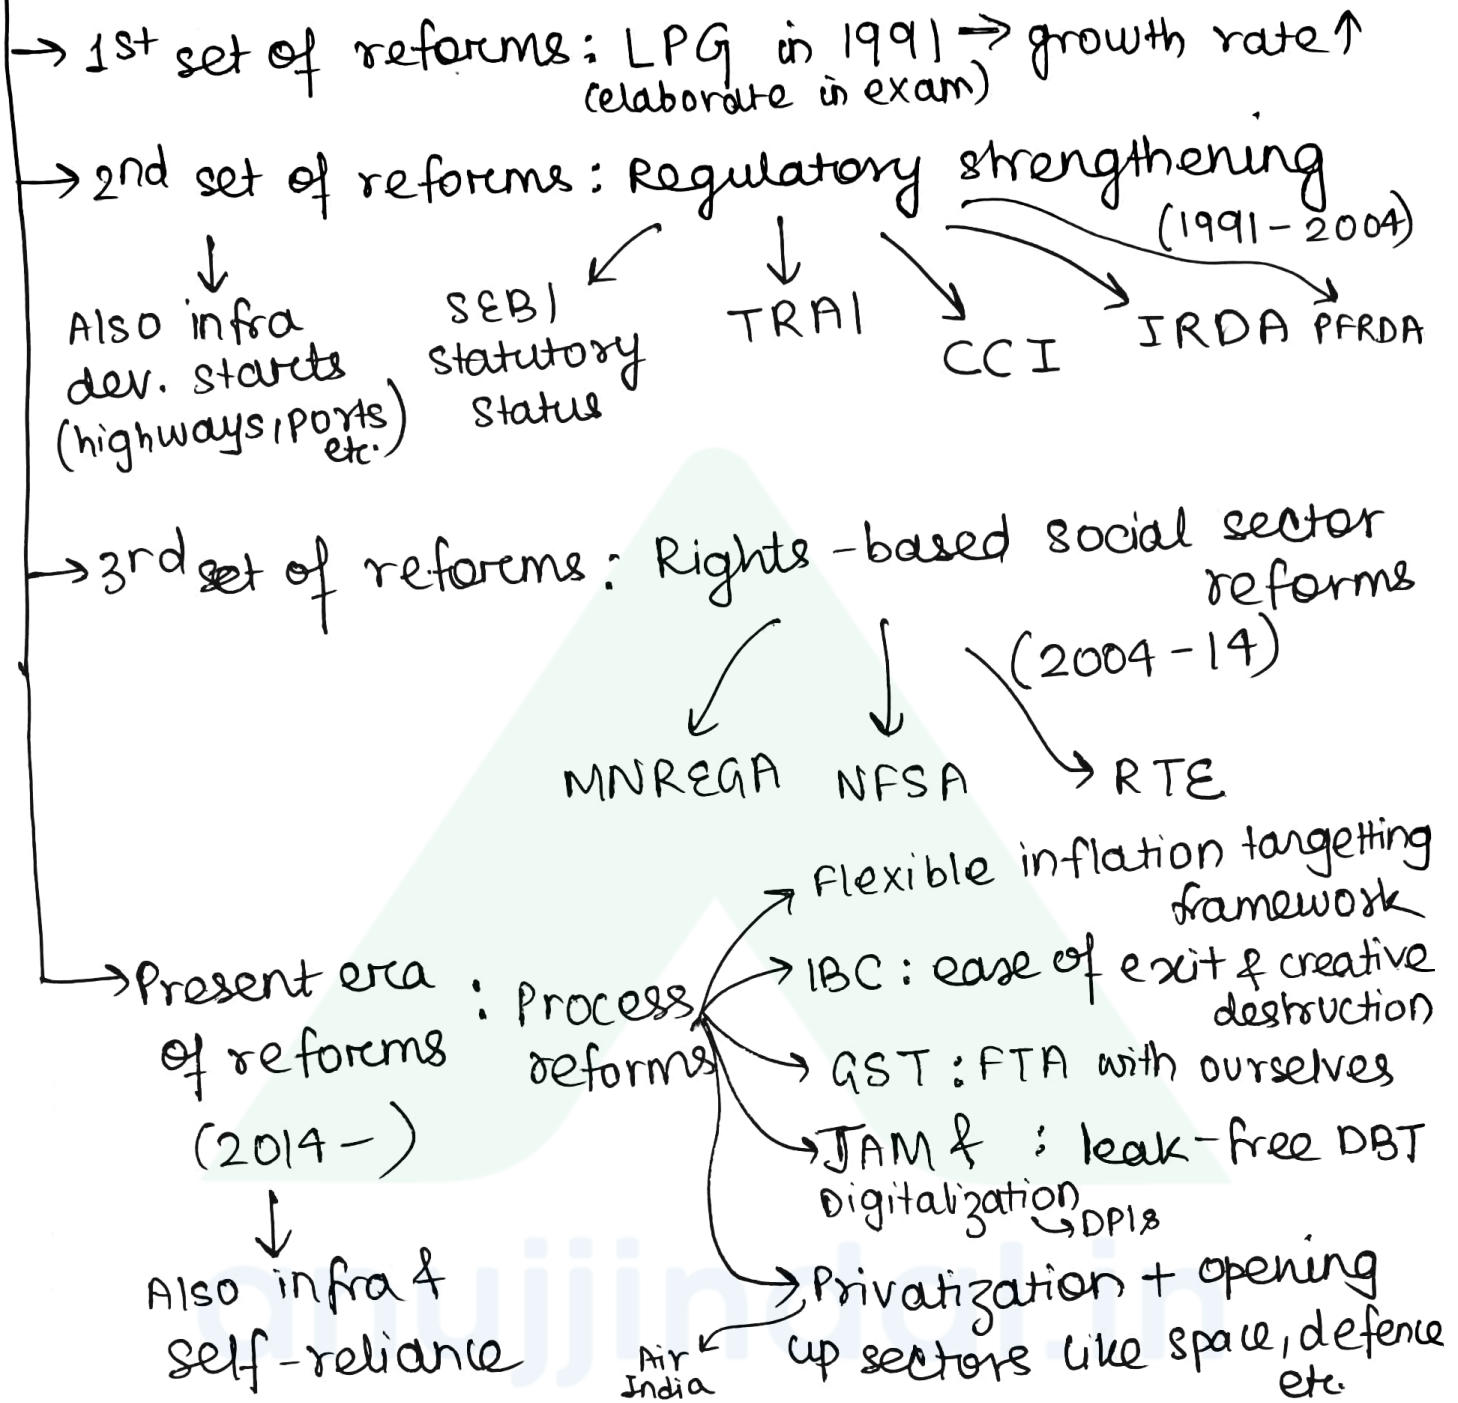 → 1st set of reforms : LPG in 1991 → growth rate ↑
(elaborate in exam)
→ 2nd set of reforms : Regulatory strengthening
(1991 - 2004)
Also infra
dev. starts
(highways, ports
etc.)
SEBI
statutory
status
TRAI
CCI
IRDA
PFRDA
→ 3rd set of reforms : Rights - based social sector
reforms
(2004 - 14)
MNREGA
NFSA
RTE
→ Present era
of reforms
(2014 - )
: Process
reforms
Flexible inflation targetting
framework
IBC : ease of exit & creative
destruction
GST : FTA with ourselves
JAM & : leak - free DBT
Digitalization
↳ DPIs
Privatization + opening
up sectors like space, defence
etc.
Air
India
Also infra &
self - reliance
anujjindal.in